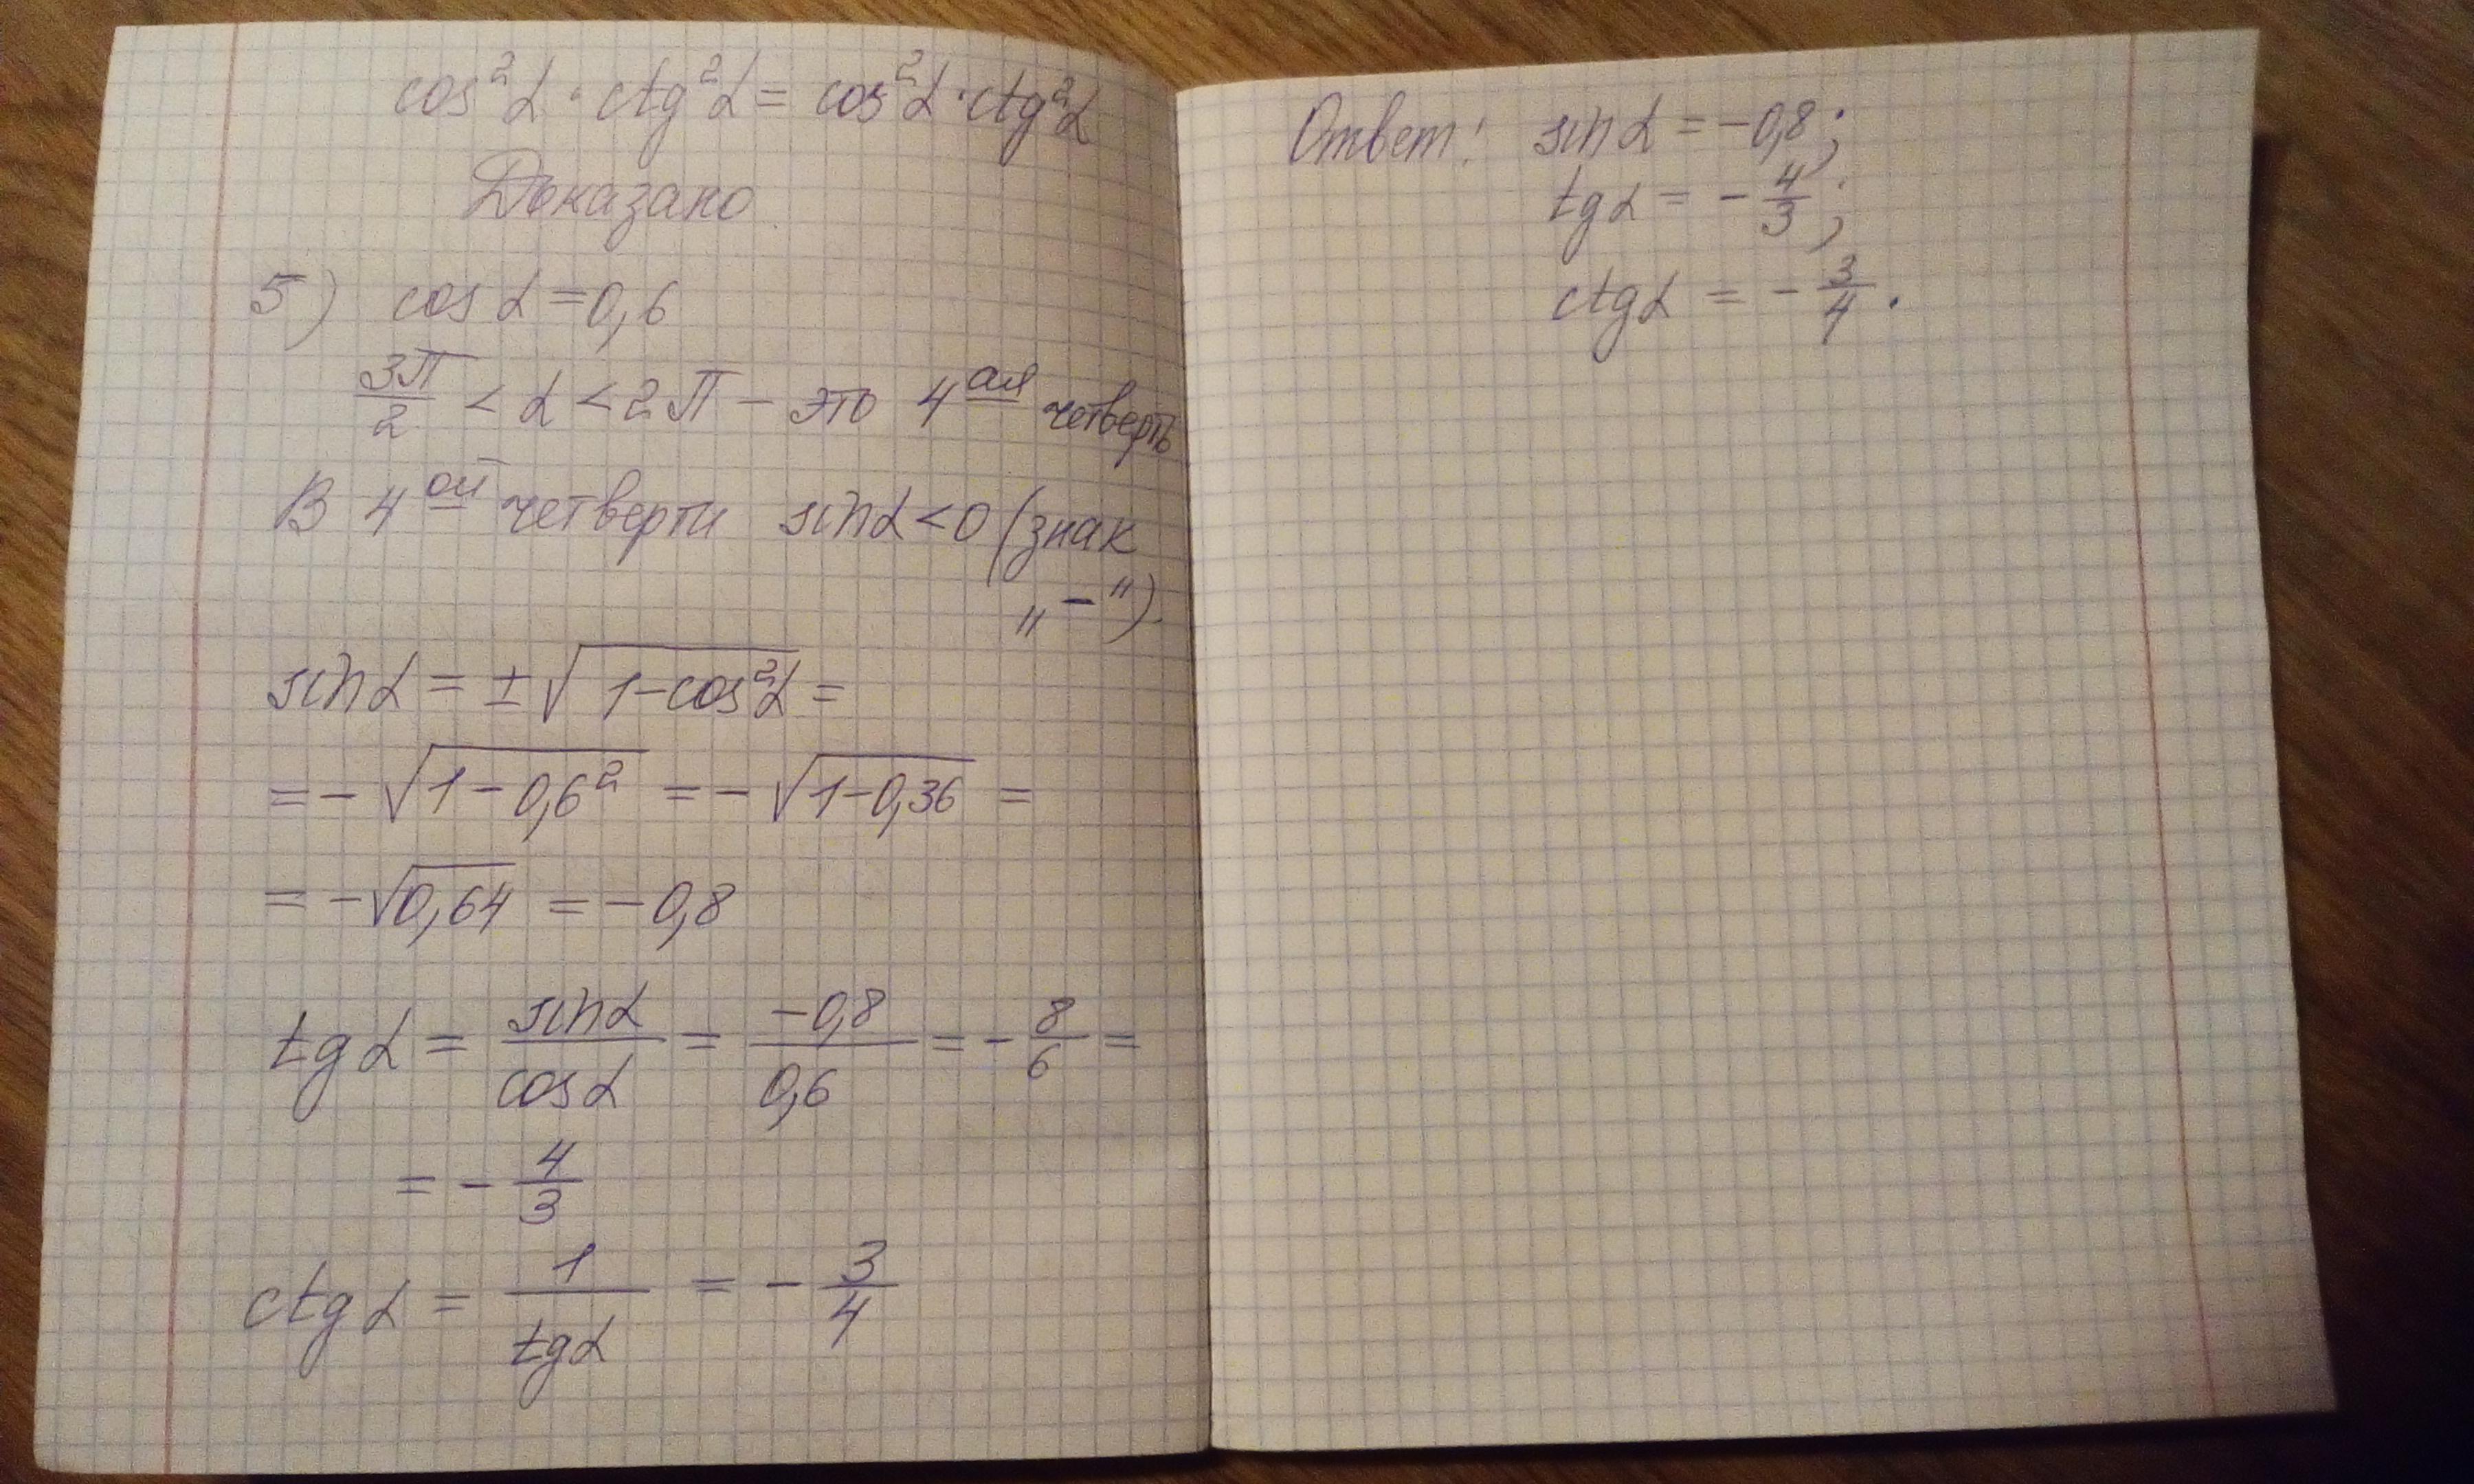 cos²α · ctg²α = cos²α · ctg²α
Доказано
5) cos α = 0,6
3π/2 < α < 2π – это 4ая четверть
В 4ой четверти sin α < 0 (знак
„–")
sin α = ±√(1-cos²α) =
= - √(1 - 0,6²) = - √(1-0,36) =
= -√0,64 = -0,8
tg α = sin α/cos α = -0,8/0,6 = - 8/6 =
= - 4/3
ctg α = 1/tg α = - 3/4
Ответ: sin α = -0,8;
tg α = - 4/3;
ctg α = - 3/4.